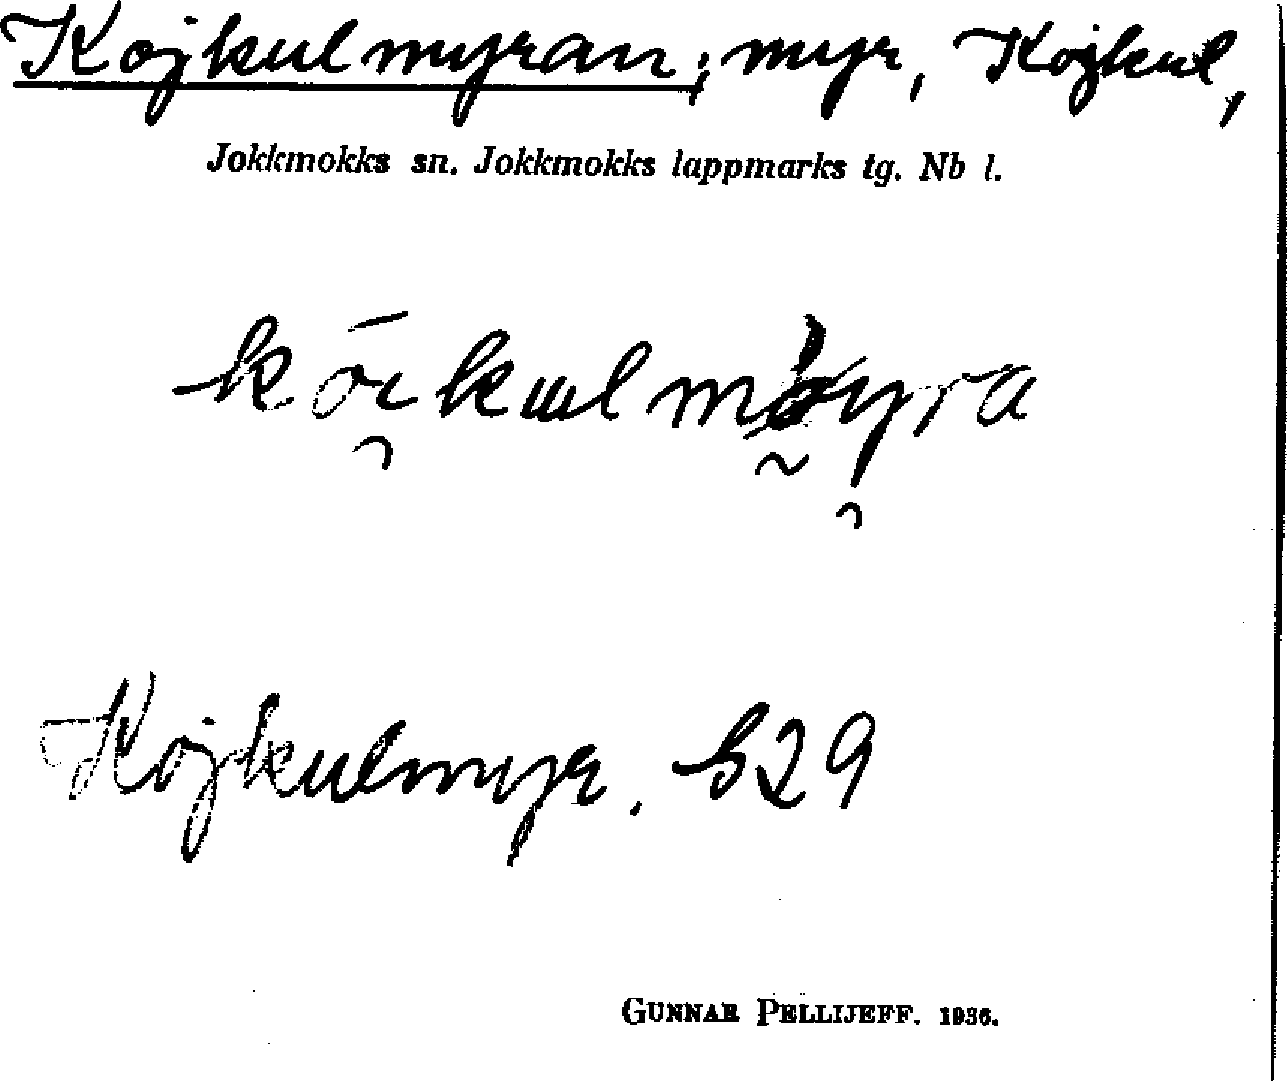 Kojkulmyran; myr, Kojkul,
Jokkmokks sn. Jokkmokks lappmarks tg. Nb l.
Kojkulmyr. b29
GUNNAR PELLIJEFF. 1936.